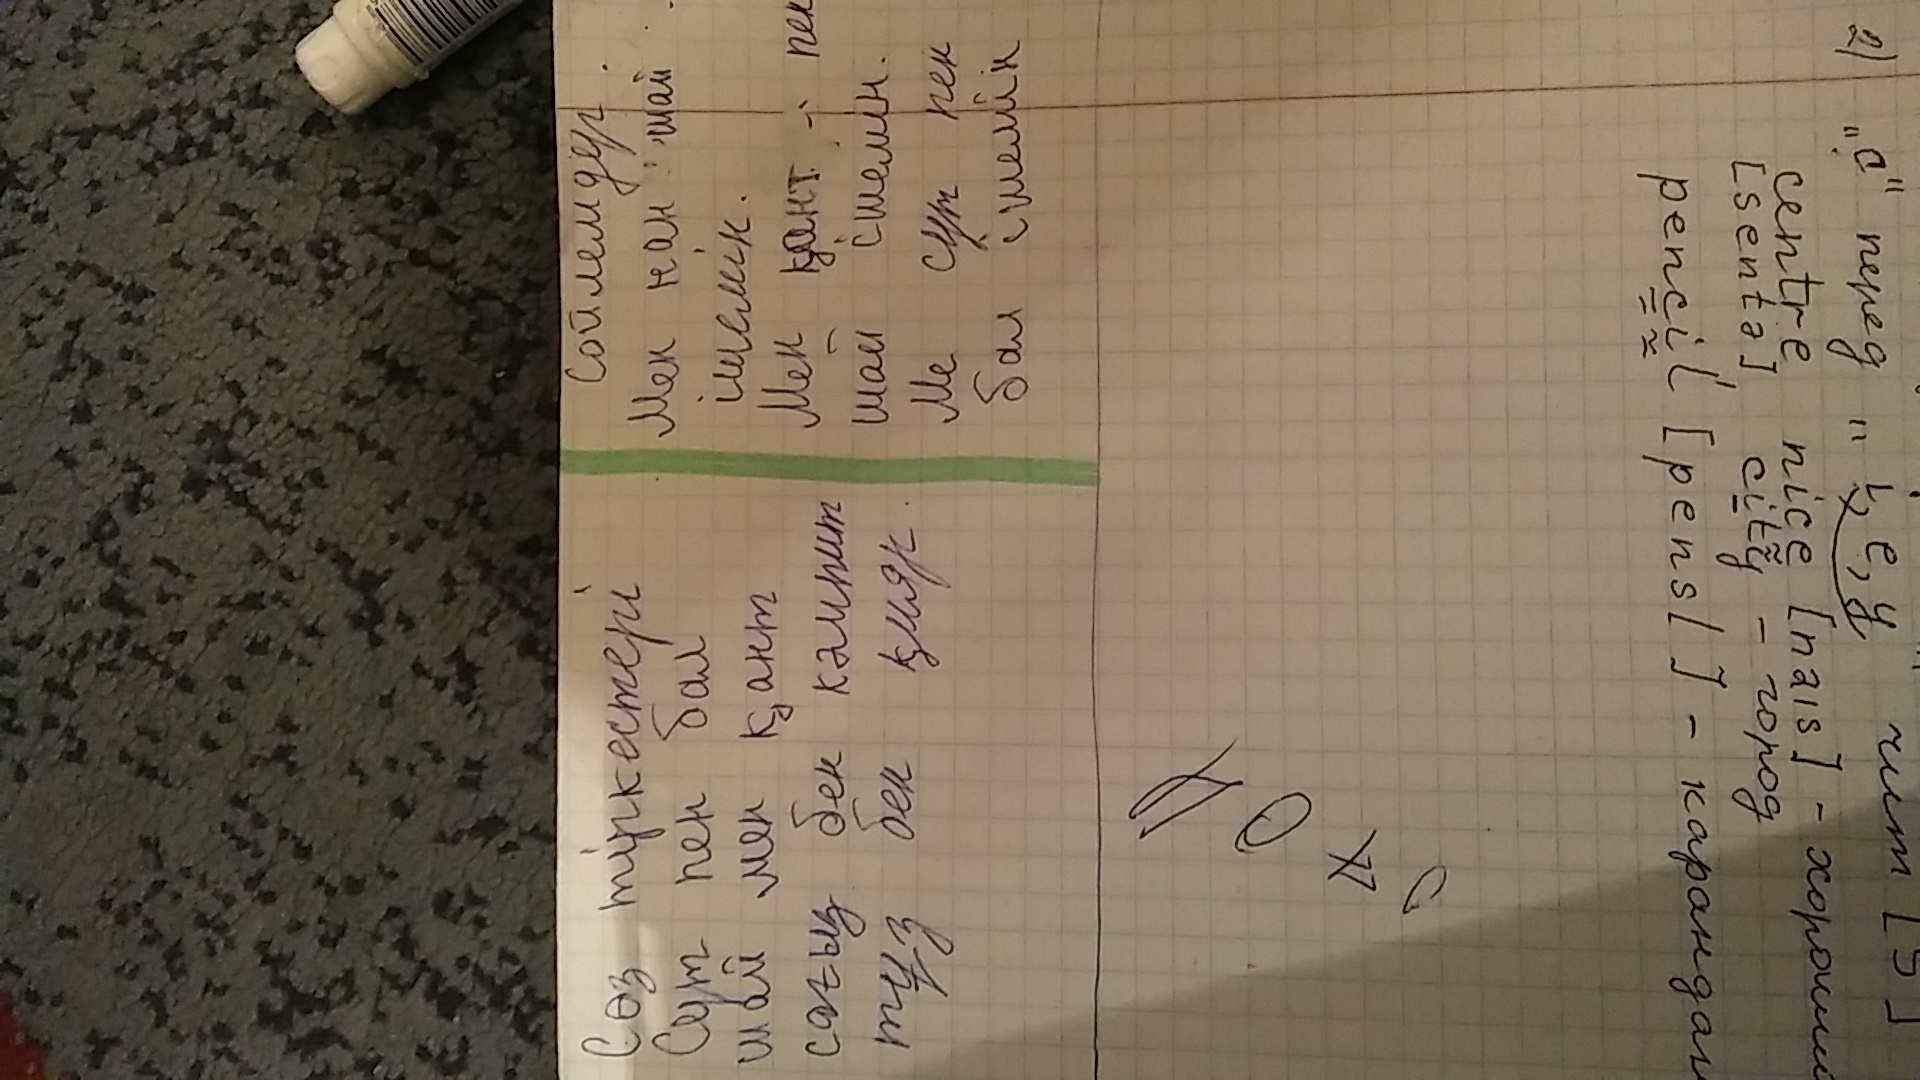 Сөз тіркестері
Сүт пен бал
шай мен қант
сағыз бен кәмпит
тұз бен қияр.
Сөйлемдер.
Мен нан шай
ішемін.
Мен қант - пен
шай ішемін.
Ме сүт пен
бал ішемін
2) "c" перед " i, e, y " чит [s]
centre nice [nais] - хороший
[sentə] city - город
pencil [pensl] - карандаш